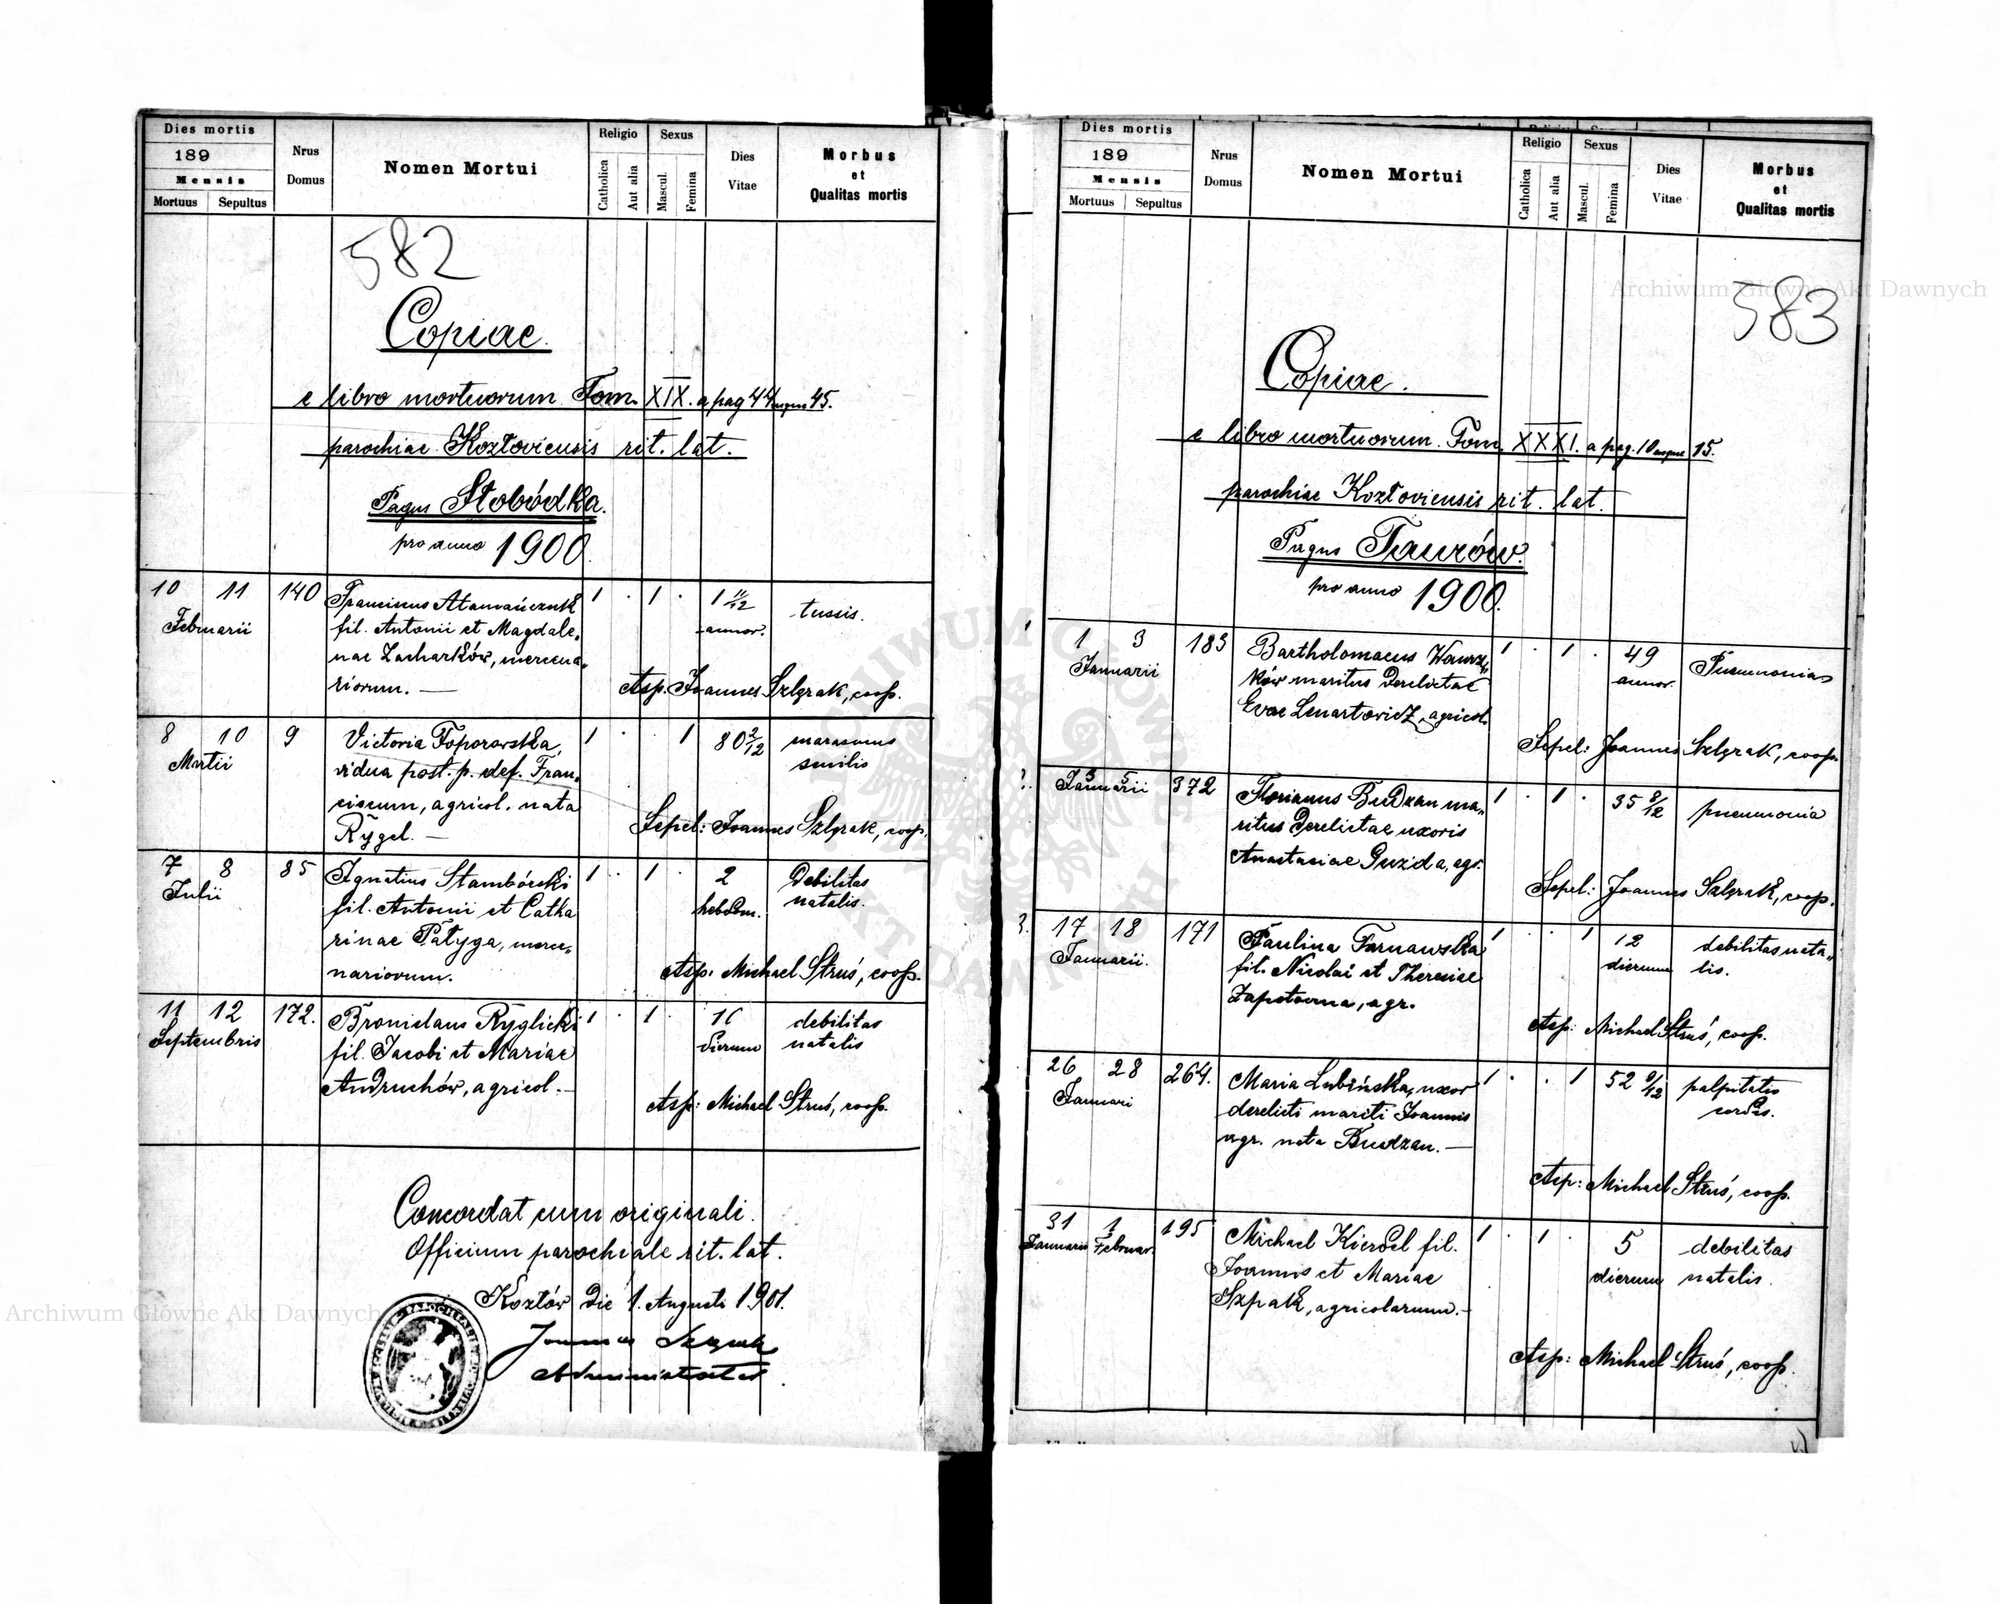 Dies mortis
189
Mensis
Mortuus Sepultus
Nrus Domus
Nomen Mortui
Religio
Catholica
Aut alia
Sexus
Mascul.
Femina
Dies Vitae
Morbus et Qualitas mortis
582
Copiae.
e libro mortuorum Tom. XIX. a pag 44 usque 45.
parochiae Kozłoviensis rit. lat.
Pagus Słobódka.
pro anno 1900.
10 11 140 Franciscus Atamańczuk 1 . 1 . 1 11/12 tussis.
Februarii fil. Antonii et Magdale- annor.
nae Zacharków, mercena-
riorum. — Asp. Joannes Szlęzak, coop.
8 10 9 Victoria Toporowska, 1 . . 1 80 2/12 marasmus
Martii vidua post. p. def. Fran- senilis
ciscum, agricol. nata
Rygel. — Sepel: Joannes Szlęzak, coop.
7 8 85 Ignatius Stambórski 1 . 1 . 2 Debilitas
Julii fil. Antonii et Catha hebdom. natalis.
rinae Patyga, merce-
nariorum. Asp: Michael Struś, coop.
11 12 172. Bronislaus Ryglicki 1 . 1 . debilitas
Septembris fil. Jacobi et Mariae dierum natalis
Andruchów, agricol. —
Asp: Michael Struś, coop.
Concordat cum originali.
Officium parochiale rit. lat.
Kozłów die 1. Augusti 1901.
Joannes Szlęzak
Administrator
Dies mortis
189
Mensis
Mortuus Sepultus
Nrus Domus
Nomen Mortui
Religio
Catholica
Aut alia
Sexus
Mascul.
Femina
Dies Vitae
Morbus et Qualitas mortis
583
Copiae.
e libro mortuorum. Tom. XXXI. a pag. 10 usque 15.
parochiae Kozłoviensis rit. lat.
Pagus Taurów.
pro anno 1900.
1 1 3 183 Bartholomaeus Wawrz- 1 . 1 . 49 Pneumonia
Januarii ków maritus derelictae annor.
Evae Lenartovicz, agricol.
Sepel: Joannes Szlęzak, coop.
2. 3 5 372 Florianus Budzan ma- 1 . 1 . 35 8/12 pneumonia
Januarii ritus derelictae uxoris
Anastasiae Guzda, agr.
Sepel: Joannes Szlęzak, coop.
3. 17 18 171 Paulina Tarnawska 1 . . 1 12 debilitas nata-
Januarii. fil. Nicolai et Theresiae dierum lis.
agr.
Asp: Michael Struś, coop.
26 28 264. Maria Lubińska, uxor 1 . . 1 52 9/12 palpitatio
Januari derelicti mariti Joannis cordis.
agr. nata Budzan. —
Asp: Michael Struś, coop.
31 1 195 Michael Kierdel fil. 1 . 1 . 5 debilitas
Januarii Februar. Joannis et Mariae dierum natalis.
Szpak, agricolarum. —
Asp: Michael Struś, coop.
Archiwum Główne Akt Dawnych
Archiwum Główne Akt Dawnych